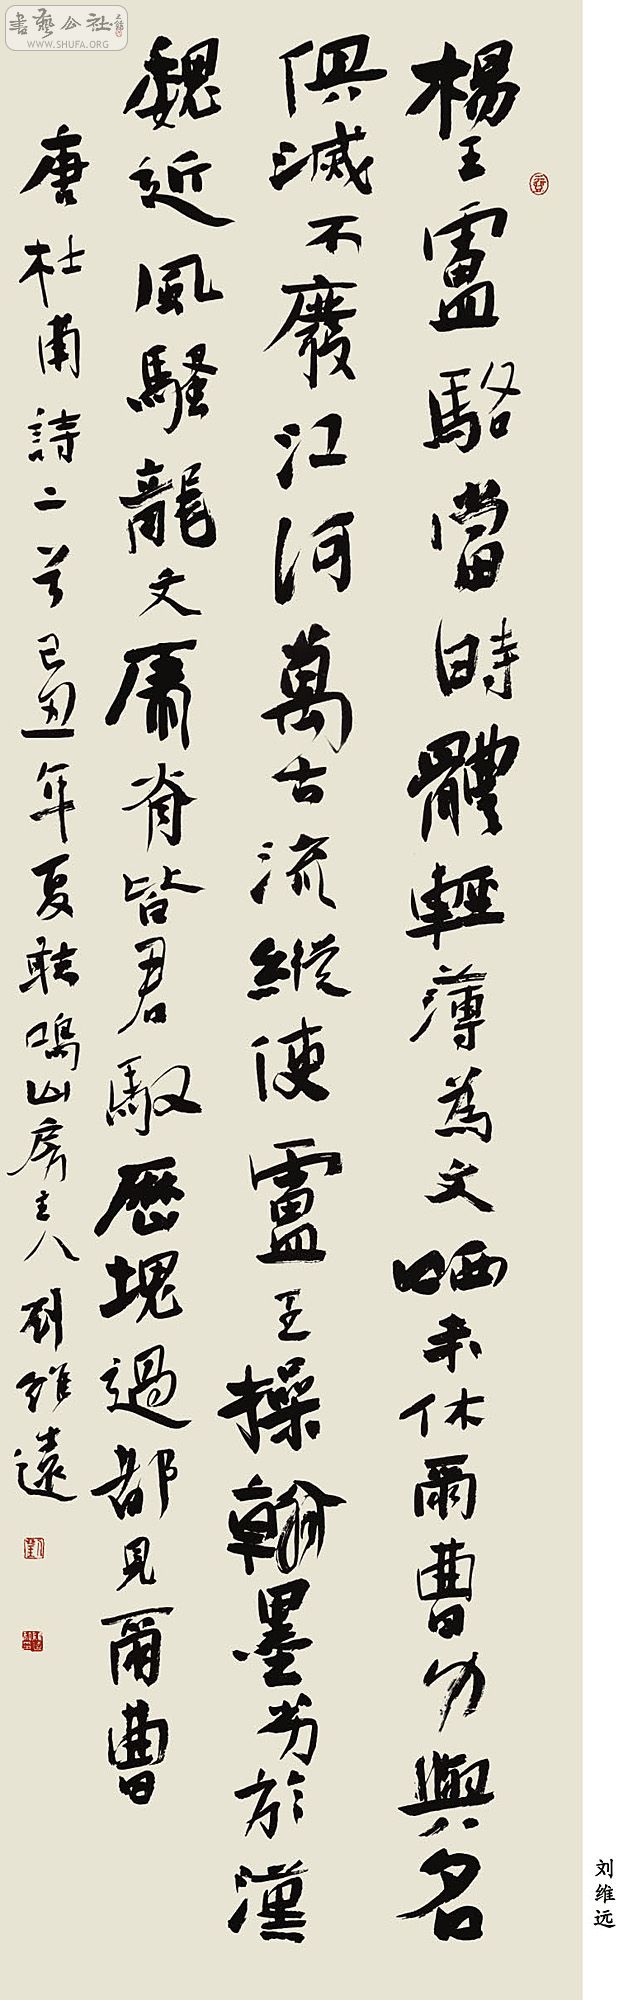 書藝公社
WWW.SHUFA.ORG
楊王盧駱當時體輕薄為文哂未休爾曹身與名
俱滅不廢江河萬古流縱使盧王操翰墨劣於漢
魏近風騷龍文虎脊皆君馭歷塊過都見爾曹
唐杜甫詩二首己丑年夏聽鳴山房主人劉維遠
刘维远